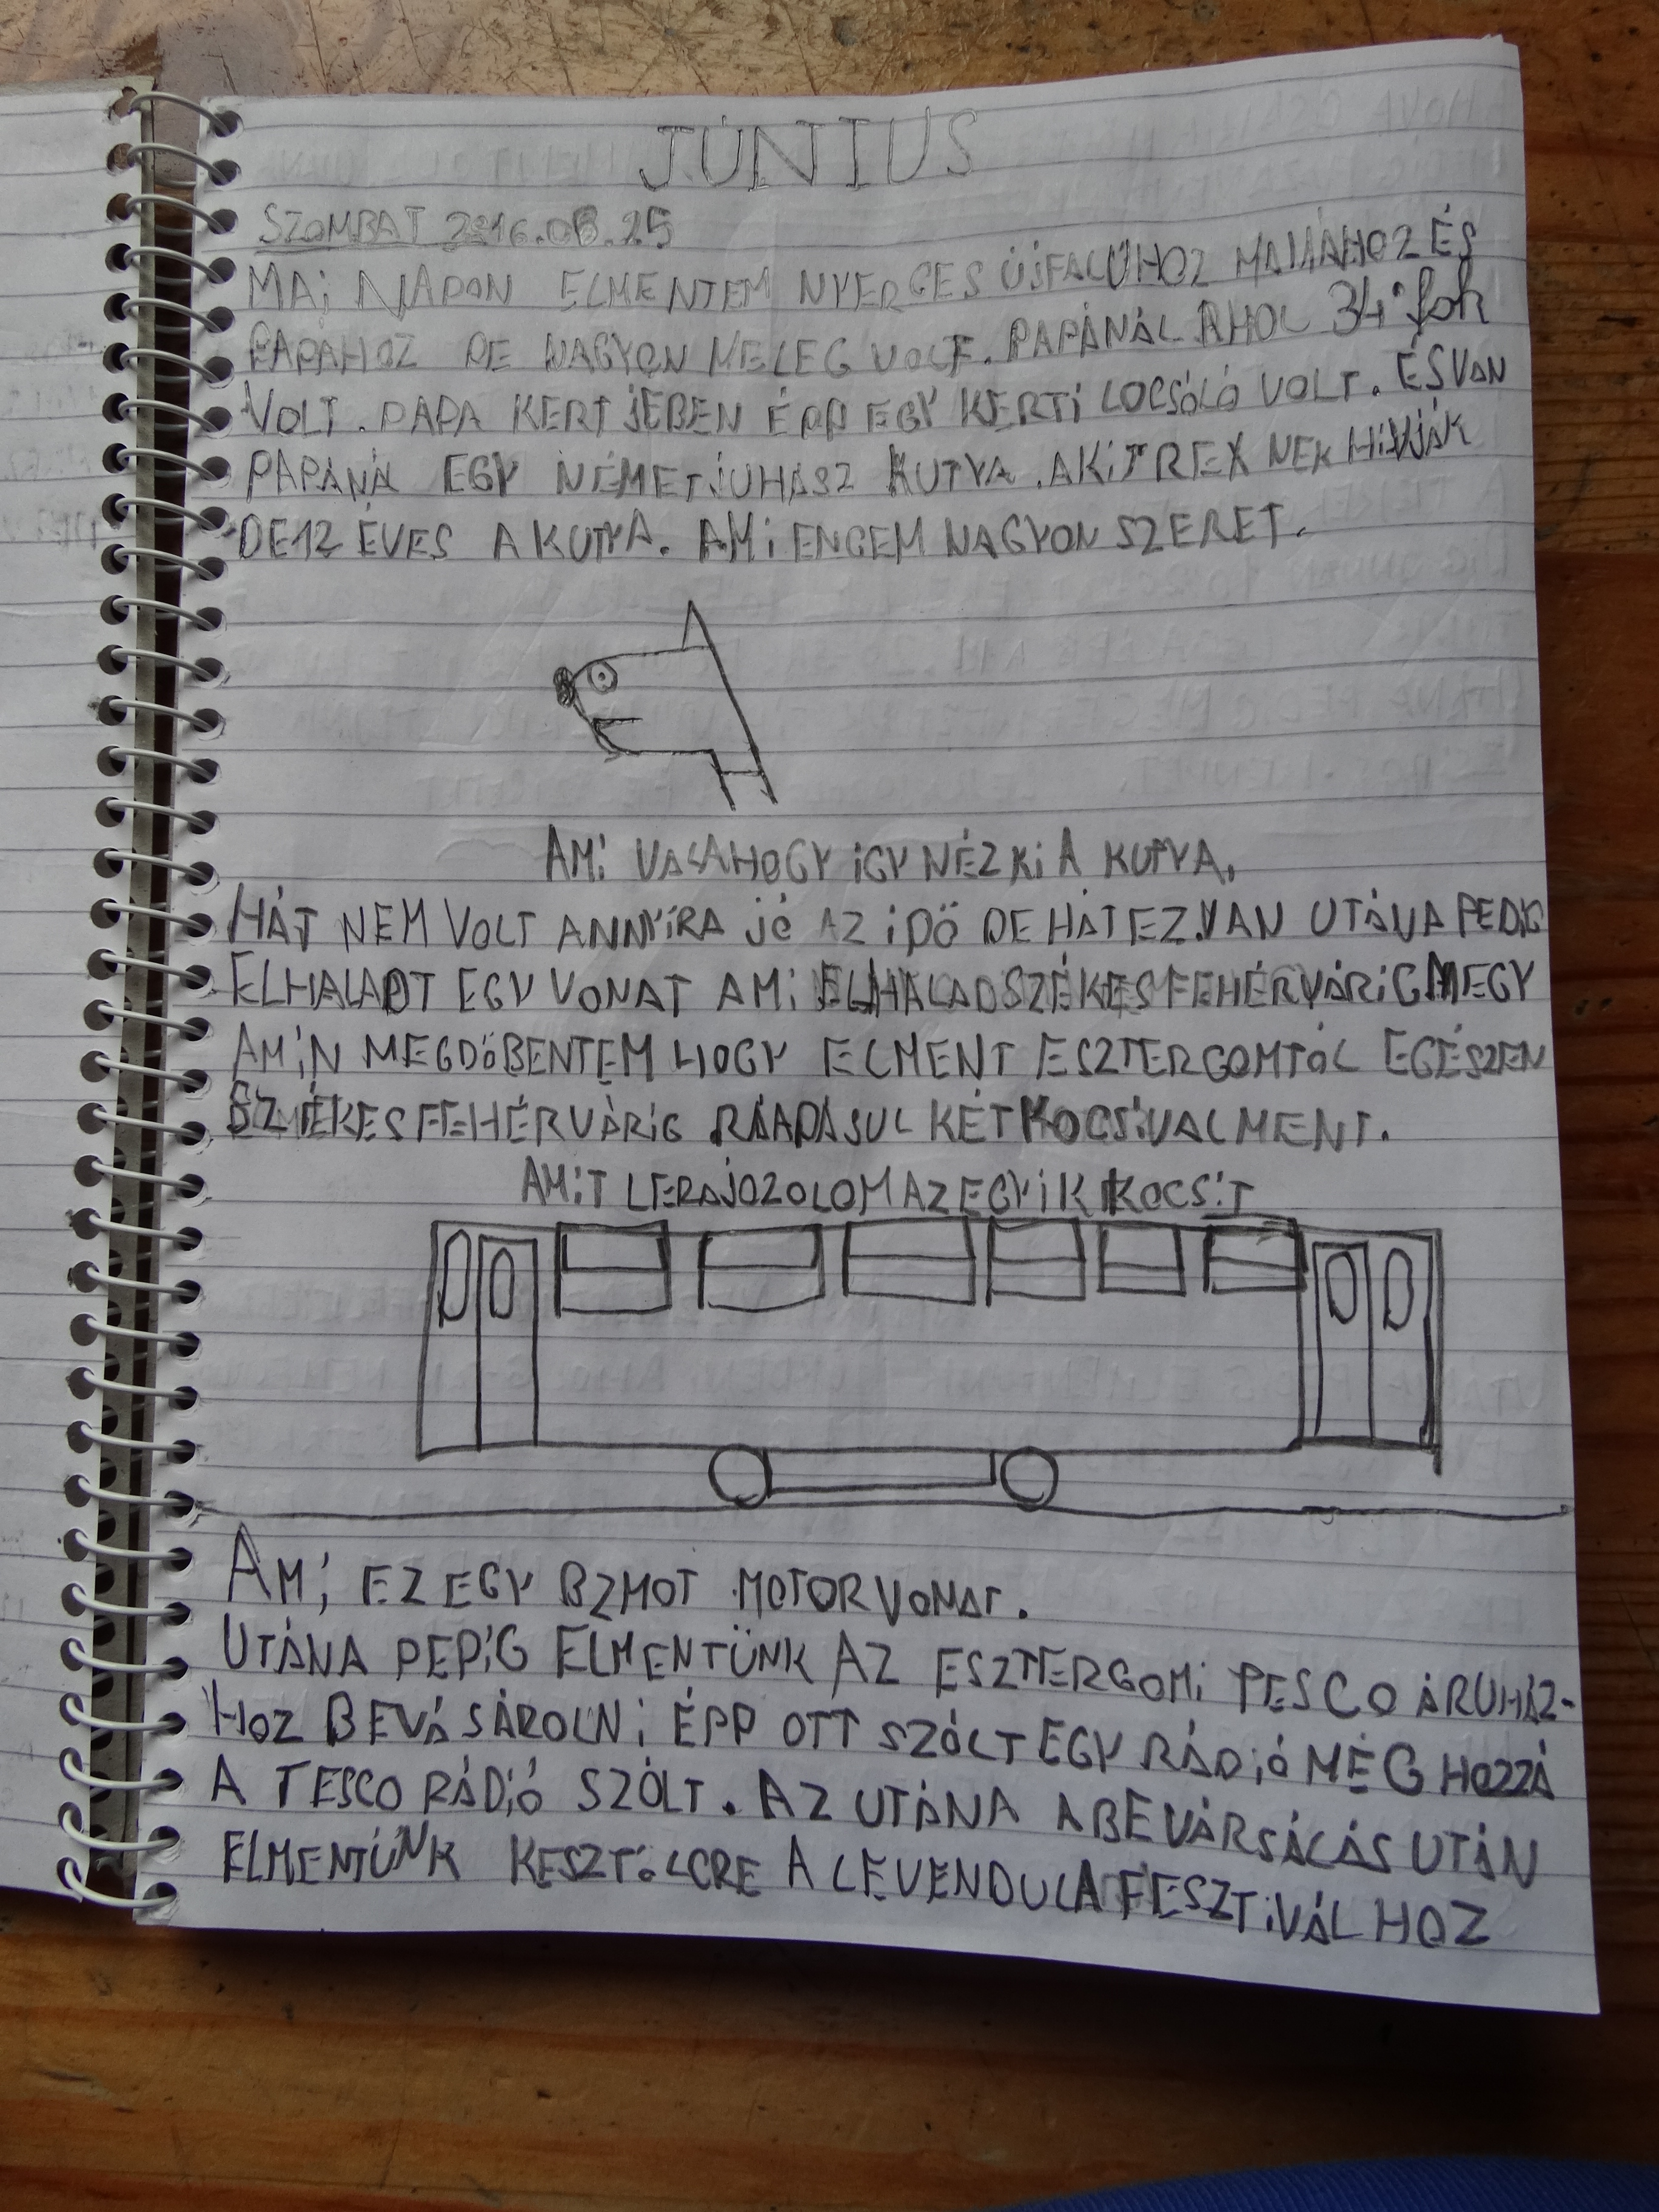 JÚNIUS
SZOMBAT 2016.06.25
MAi NAPON ELMENTEM NYERGES ÚJFALÚHOZ MAMÁHOZ ÉS
PAPÁHOZ DE NAGYON MELEG VOLT. PAPÁNÁL AHOL 34° fok
VOLT. PAPA KERTJÉBEN ÉPP EGY KERTi LOCSÓLÓ VOLT. ÉS VAN
PAPÁNÁ EGY NÉMETJUHÁSZ KUTYA. AKiT REX NEK HiVJÁK
DE 12 ÉVES A KUTYA. AMi ENGEM NAGYON SZERET.
AMi VALAHOGY iGY NÉZ Ki A KUTYA.
HÁT NEM VOLT ANNYiRA JÓ AZ iDŐ DE HÁT EZ VAN UTÁNA PEDiG
ELHALADT EGY VONAT AMi ELHALAD SZÉKESFEHÉRVÁRiG MEGY
AMiN MEGDÖBENTEM HOGY ELMENT ESZTERGOMTÓL EGÉSZEN
SZÉKESFEHÉRVÁRiG RÁADÁSUL KÉT KOCSiVAL MENT.
AMiT LERAJOZOLOM AZ EGYiK KOCSiT
AMi EZ EGY BZMOT MOTORVONAT.
UTÁNA PEDiG ELMENTÜNK AZ ESZTERGOMi TESCO ÁRUHÁZ-
HOZ BEVÁSÁROLNi ÉPP OTT SZÓLT EGY RÁDiÓ MÉG HOZZÁ
A TESCO RÁDiÓ SZÓLT. AZ UTÁNA A BEVÁRSÁLÁS UTÁN
ELMENTÜNK KESZTÖLCRE A LEVENDULA FESZTiVÁL HOZ